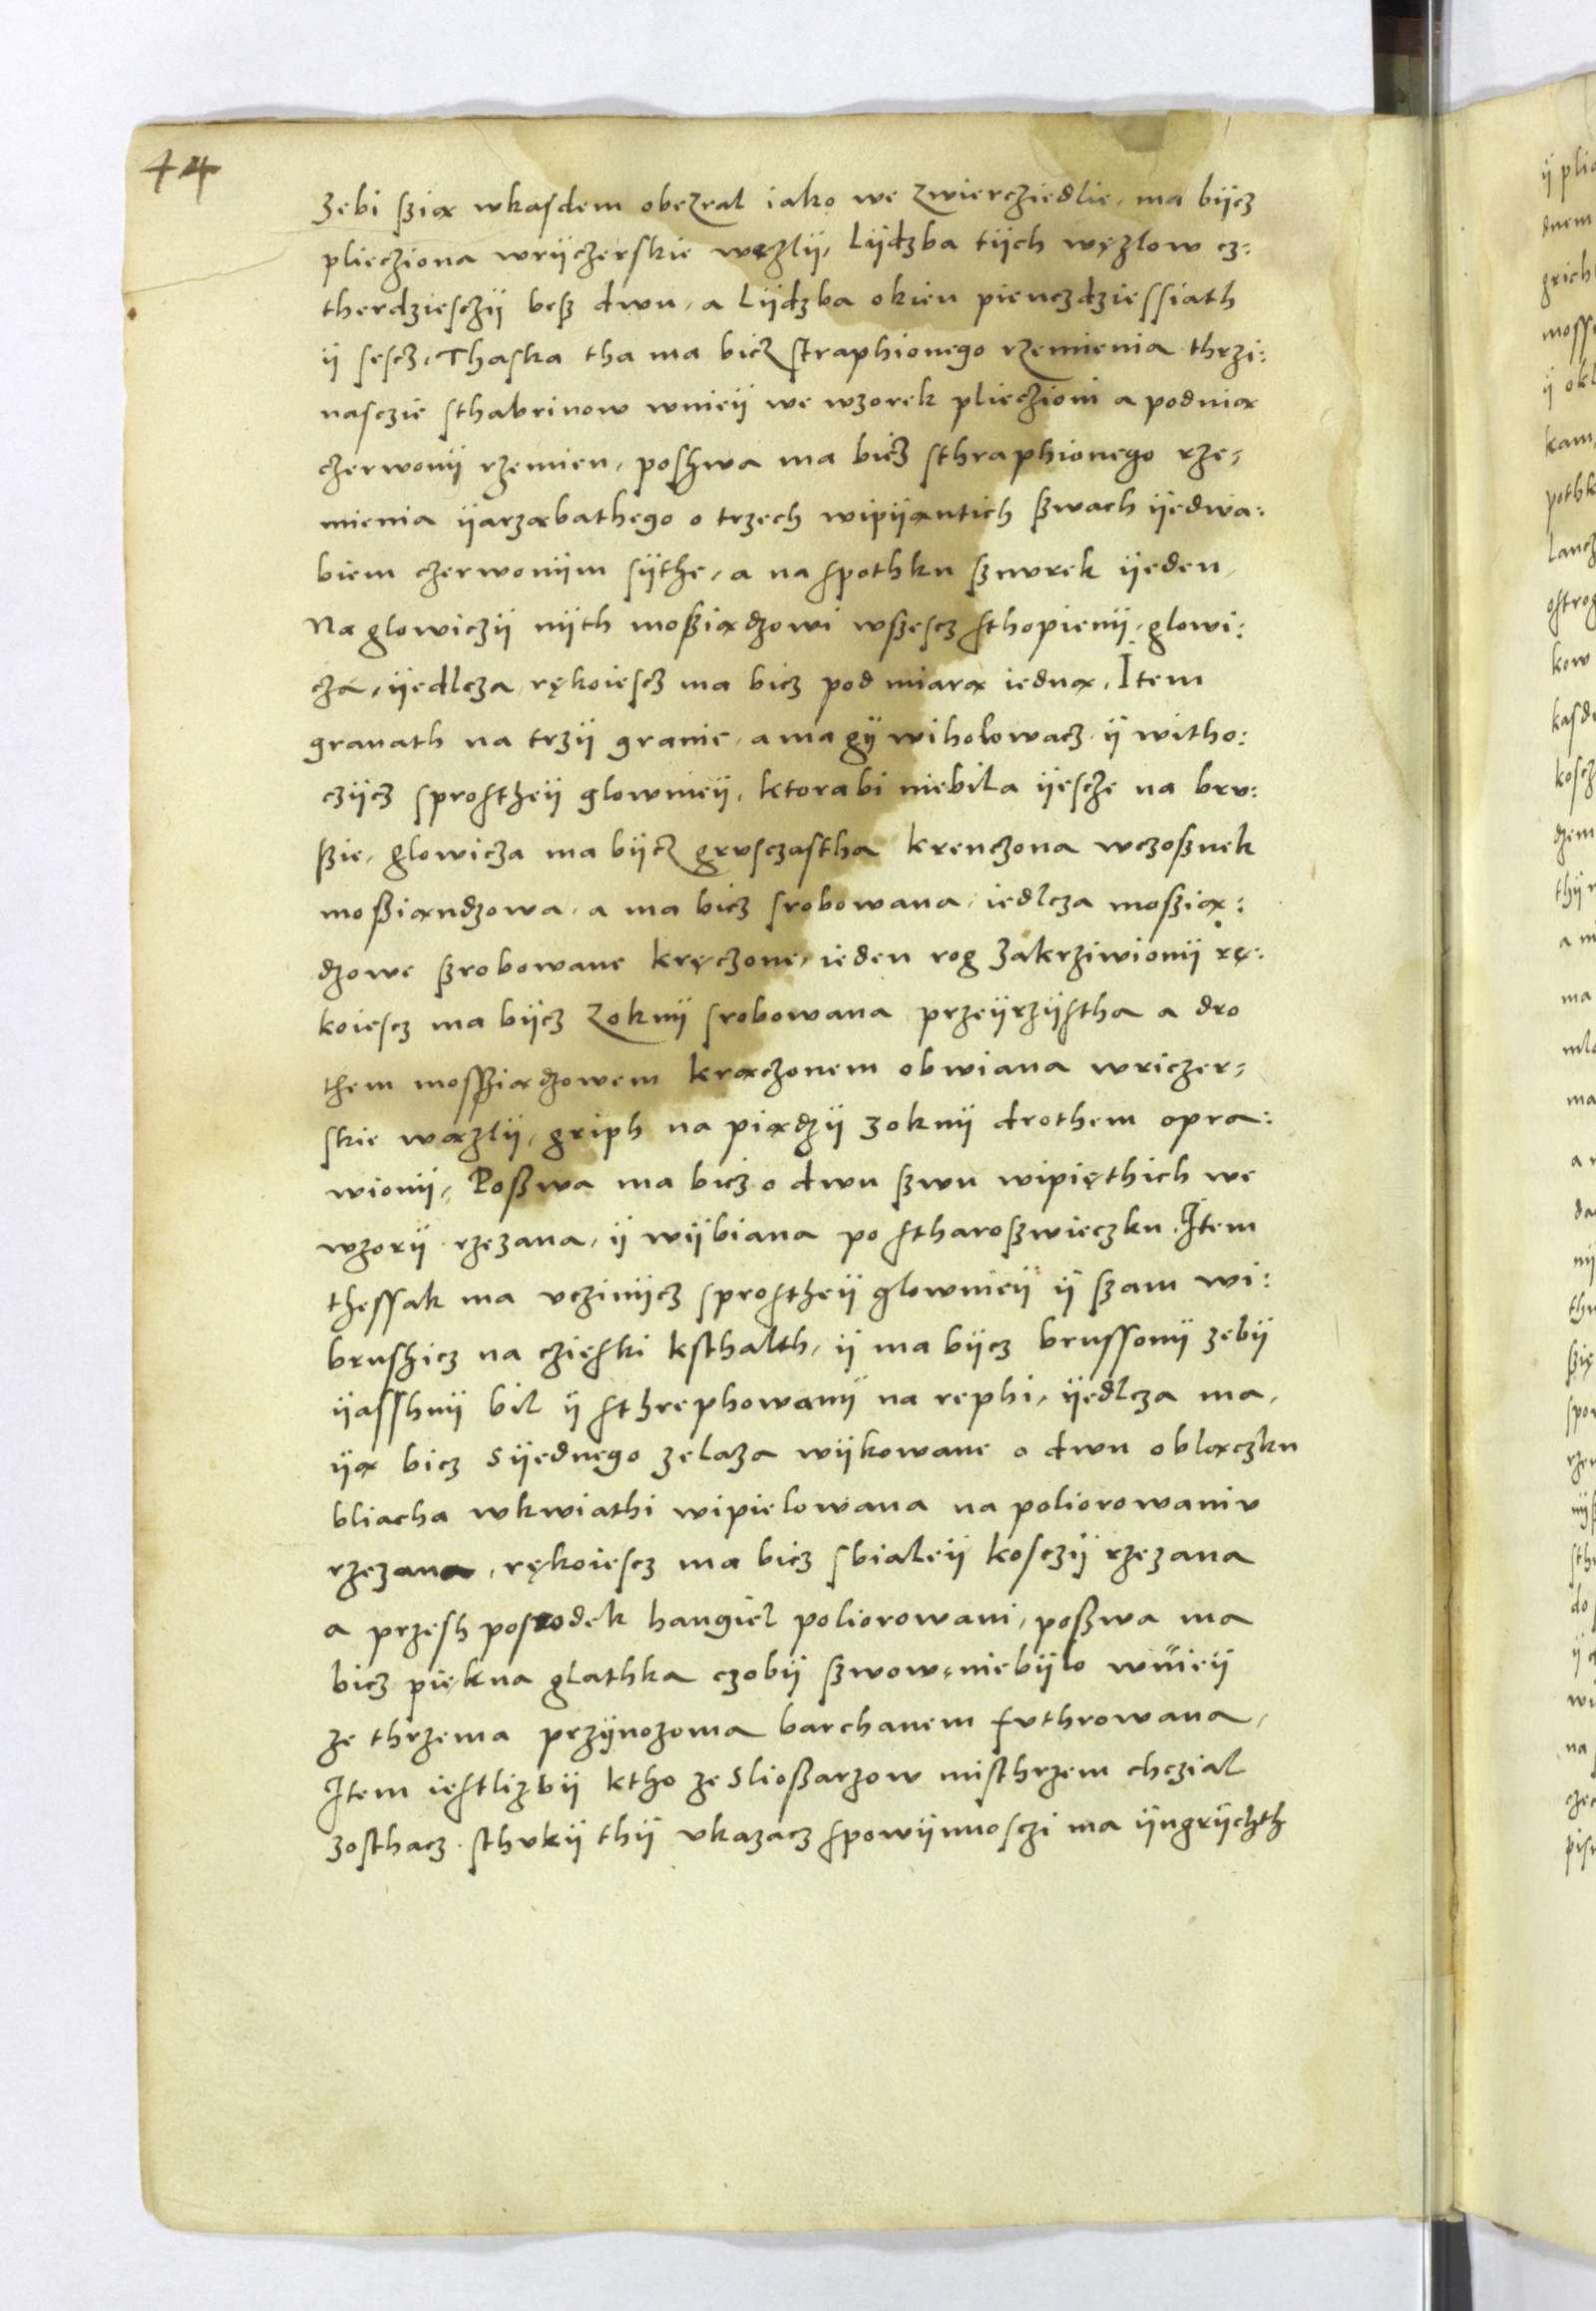 44
zebi szią wkasdem obezral iako we zwierczjedlie, ma bÿcz
plieczjona wrÿczerskie węzlÿ, Lÿdzba tÿch węzlow cz:
therdziesczÿ besz dwu, a Lÿdzba okien pienczdziessiath
ÿ sescz, Thaska tha ma bicz straphionego rzemienia thrzi:
nasczie sthabrinow wnieÿ we wzorek plieczioni a podnią
czerwonÿ rzemien, poszwa ma bicz sthraphionego rze:
mienia ÿarząbathego o trzech wipÿąntich szwach ÿedwa:
biem czerwonÿm sÿthe, a na spothku sznurek ÿeden,
Na glowiczÿ nÿth mosziądzowi wszescz sthopienÿ, glowi:
cza, ÿedlcza rękoiescz ma bicz pod miarą iedną, Item
granath na trzÿ granie, a ma gÿ wiholowacz ÿ witho:
czÿcz sprostheÿ glownieÿ, ktorabi niebila ÿescze na bru:
szie, glowicza ma bÿcz grusczastha krenczona wczosznek
mosziąndzowa, a ma bicz srobowana, iedlcza moszią:
dzowe szrobowane kręczone, ieden rog zakrziwionÿ rę:
koiescz ma bÿcz zoknÿ srobowana przeÿrzÿstha a dro
them mosziądzowem krączonem obwiana wriczer:
skie wązlÿ, griph na piądzÿ zoknÿ drothem opra:
wionÿ, Poszwa ma bicz o dwu szwu wipięthich we
wzorÿ rzezana, ÿ wÿbiana po stharoszwieczku. Item
thessak ma vczinÿcz sprostheÿ glownieÿ ÿ szam wi:
bruszicz na czieski ksthalth, ÿ ma bÿcz brussonÿ zebÿ
ÿasshnÿ bil ÿ sthrephowanÿ na rephi, ÿedlcza ma,
ÿą bicz sÿednego zelaza wÿkowane o dwu oblączku
bliacha wkwiathi wipielowana na poliorowaniu
rzezana, rękoiescz ma bicz sbialeÿ kosczÿ rzezana
a przesh posrodek hangiel poliorowani, poszwa ma
bicz piękna glathka czobÿ szwow niebÿlo wnieÿ
ze thrzema przÿnozoma barchanem futhrowana,
Item iestlizbÿ ktho ze sliosarzow misthrzem chczial
zosthacz, sthukÿ thÿ vkazacz spowÿnnosczi ma ÿngrÿchth